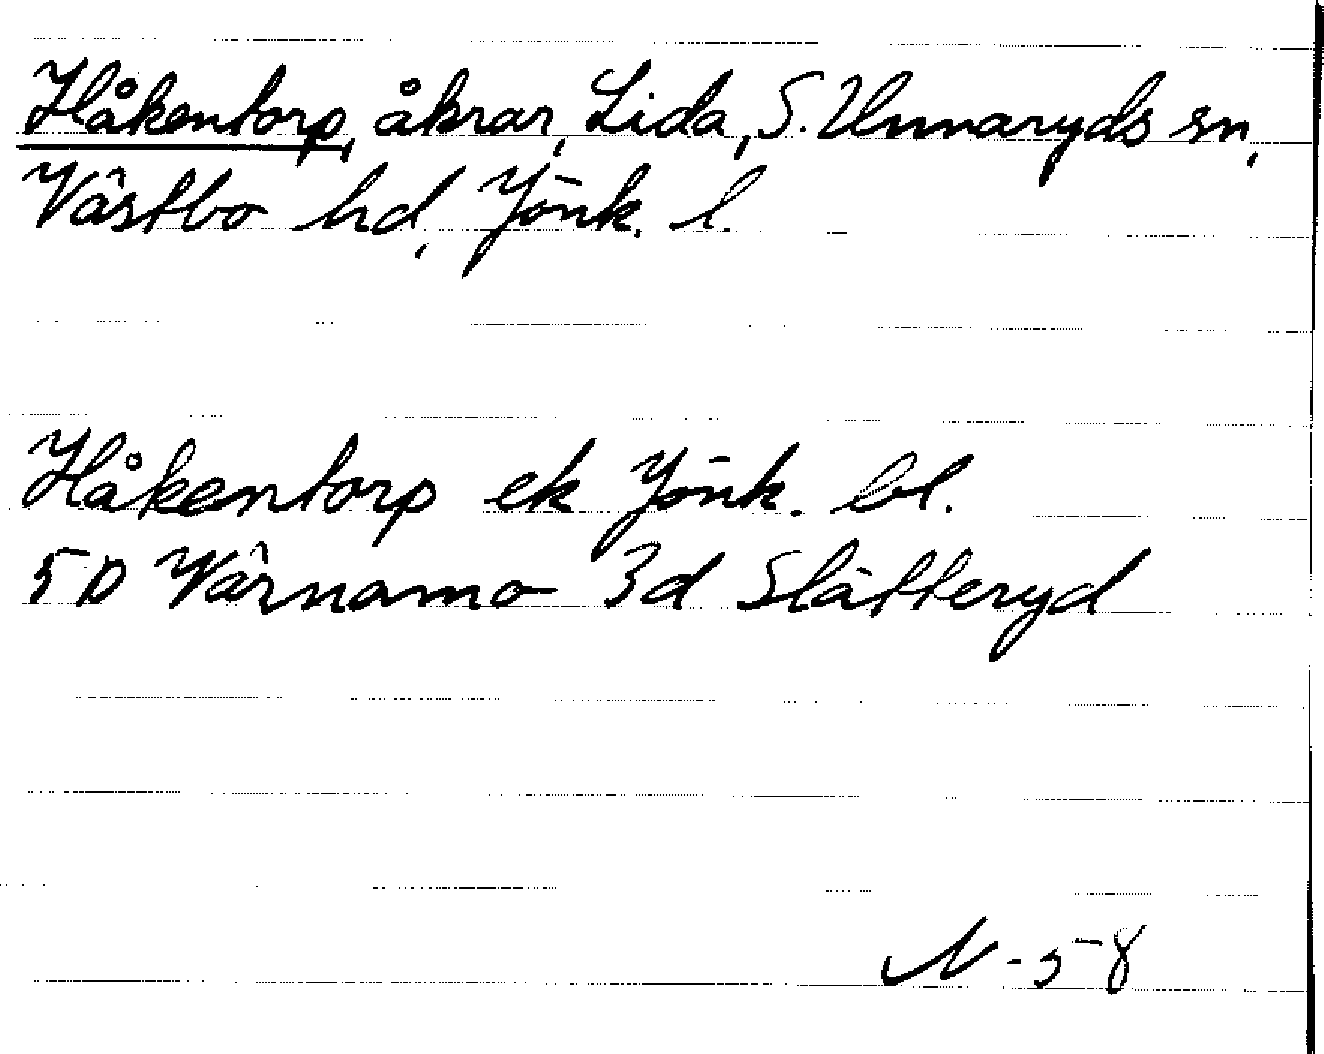 Håkentorp, åkrar, Lida, S. Unnaryds sn,
Västbo hd, Jönk. l.
Håkentorp ek Jönk. bl.
5D Värnamo 3d Slätteryd
N-58